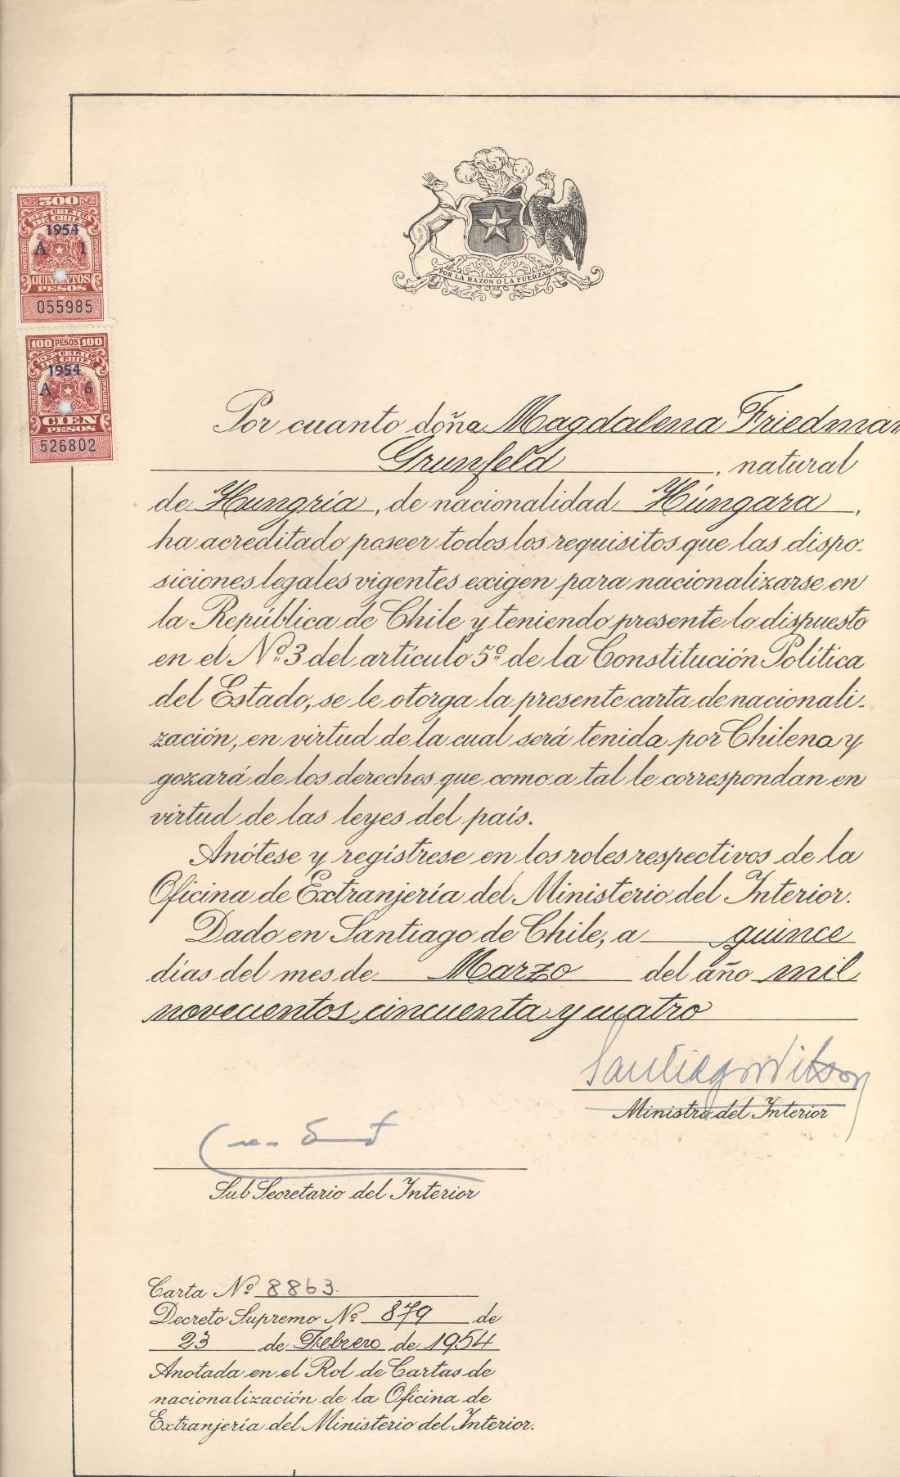 500
REPUBLICA
DE CHILE
1954
A 1
QUINIENTOS
PESOS
055985
100 PESOS 100
REPUBLICA
DE CHILE
1954
A 6
CIEN
PESOS
526802
POR LA RAZON O LA FUERZA
Por cuanto doña Magdalena Friedman
Grunfeld, natural
de Hungría, de nacionalidad Húngara,
ha acreditado poseer todos los requisitos que las dispo-
siciones legales vigentes exigen para nacionalizarse en
la República de Chile y teniendo presente lo dispuesto
en el Nº 3 del artículo 5º de la Constitución Política
del Estado, se le otorga la presente carta de nacionali-
zación, en virtud de la cual será tenida por Chilena y
gozará de los derechos que como a tal le correspondan en
virtud de las leyes del país.
Anótese y regístrese en los roles respectivos de la
Oficina de Extranjería del Ministerio del Interior.
Dado en Santiago de Chile, a quince
días del mes de Marzo del año mil
novecientos cincuenta y cuatro
Santiago Wilson
Ministro del Interior
Sub Secretario del Interior
Carta Nº 8863.
Decreto Supremo Nº 879 de
23 de Febrero de 1954
Anotada en el Rol de Cartas de
nacionalización de la Oficina de
Extranjería del Ministerio del Interior.